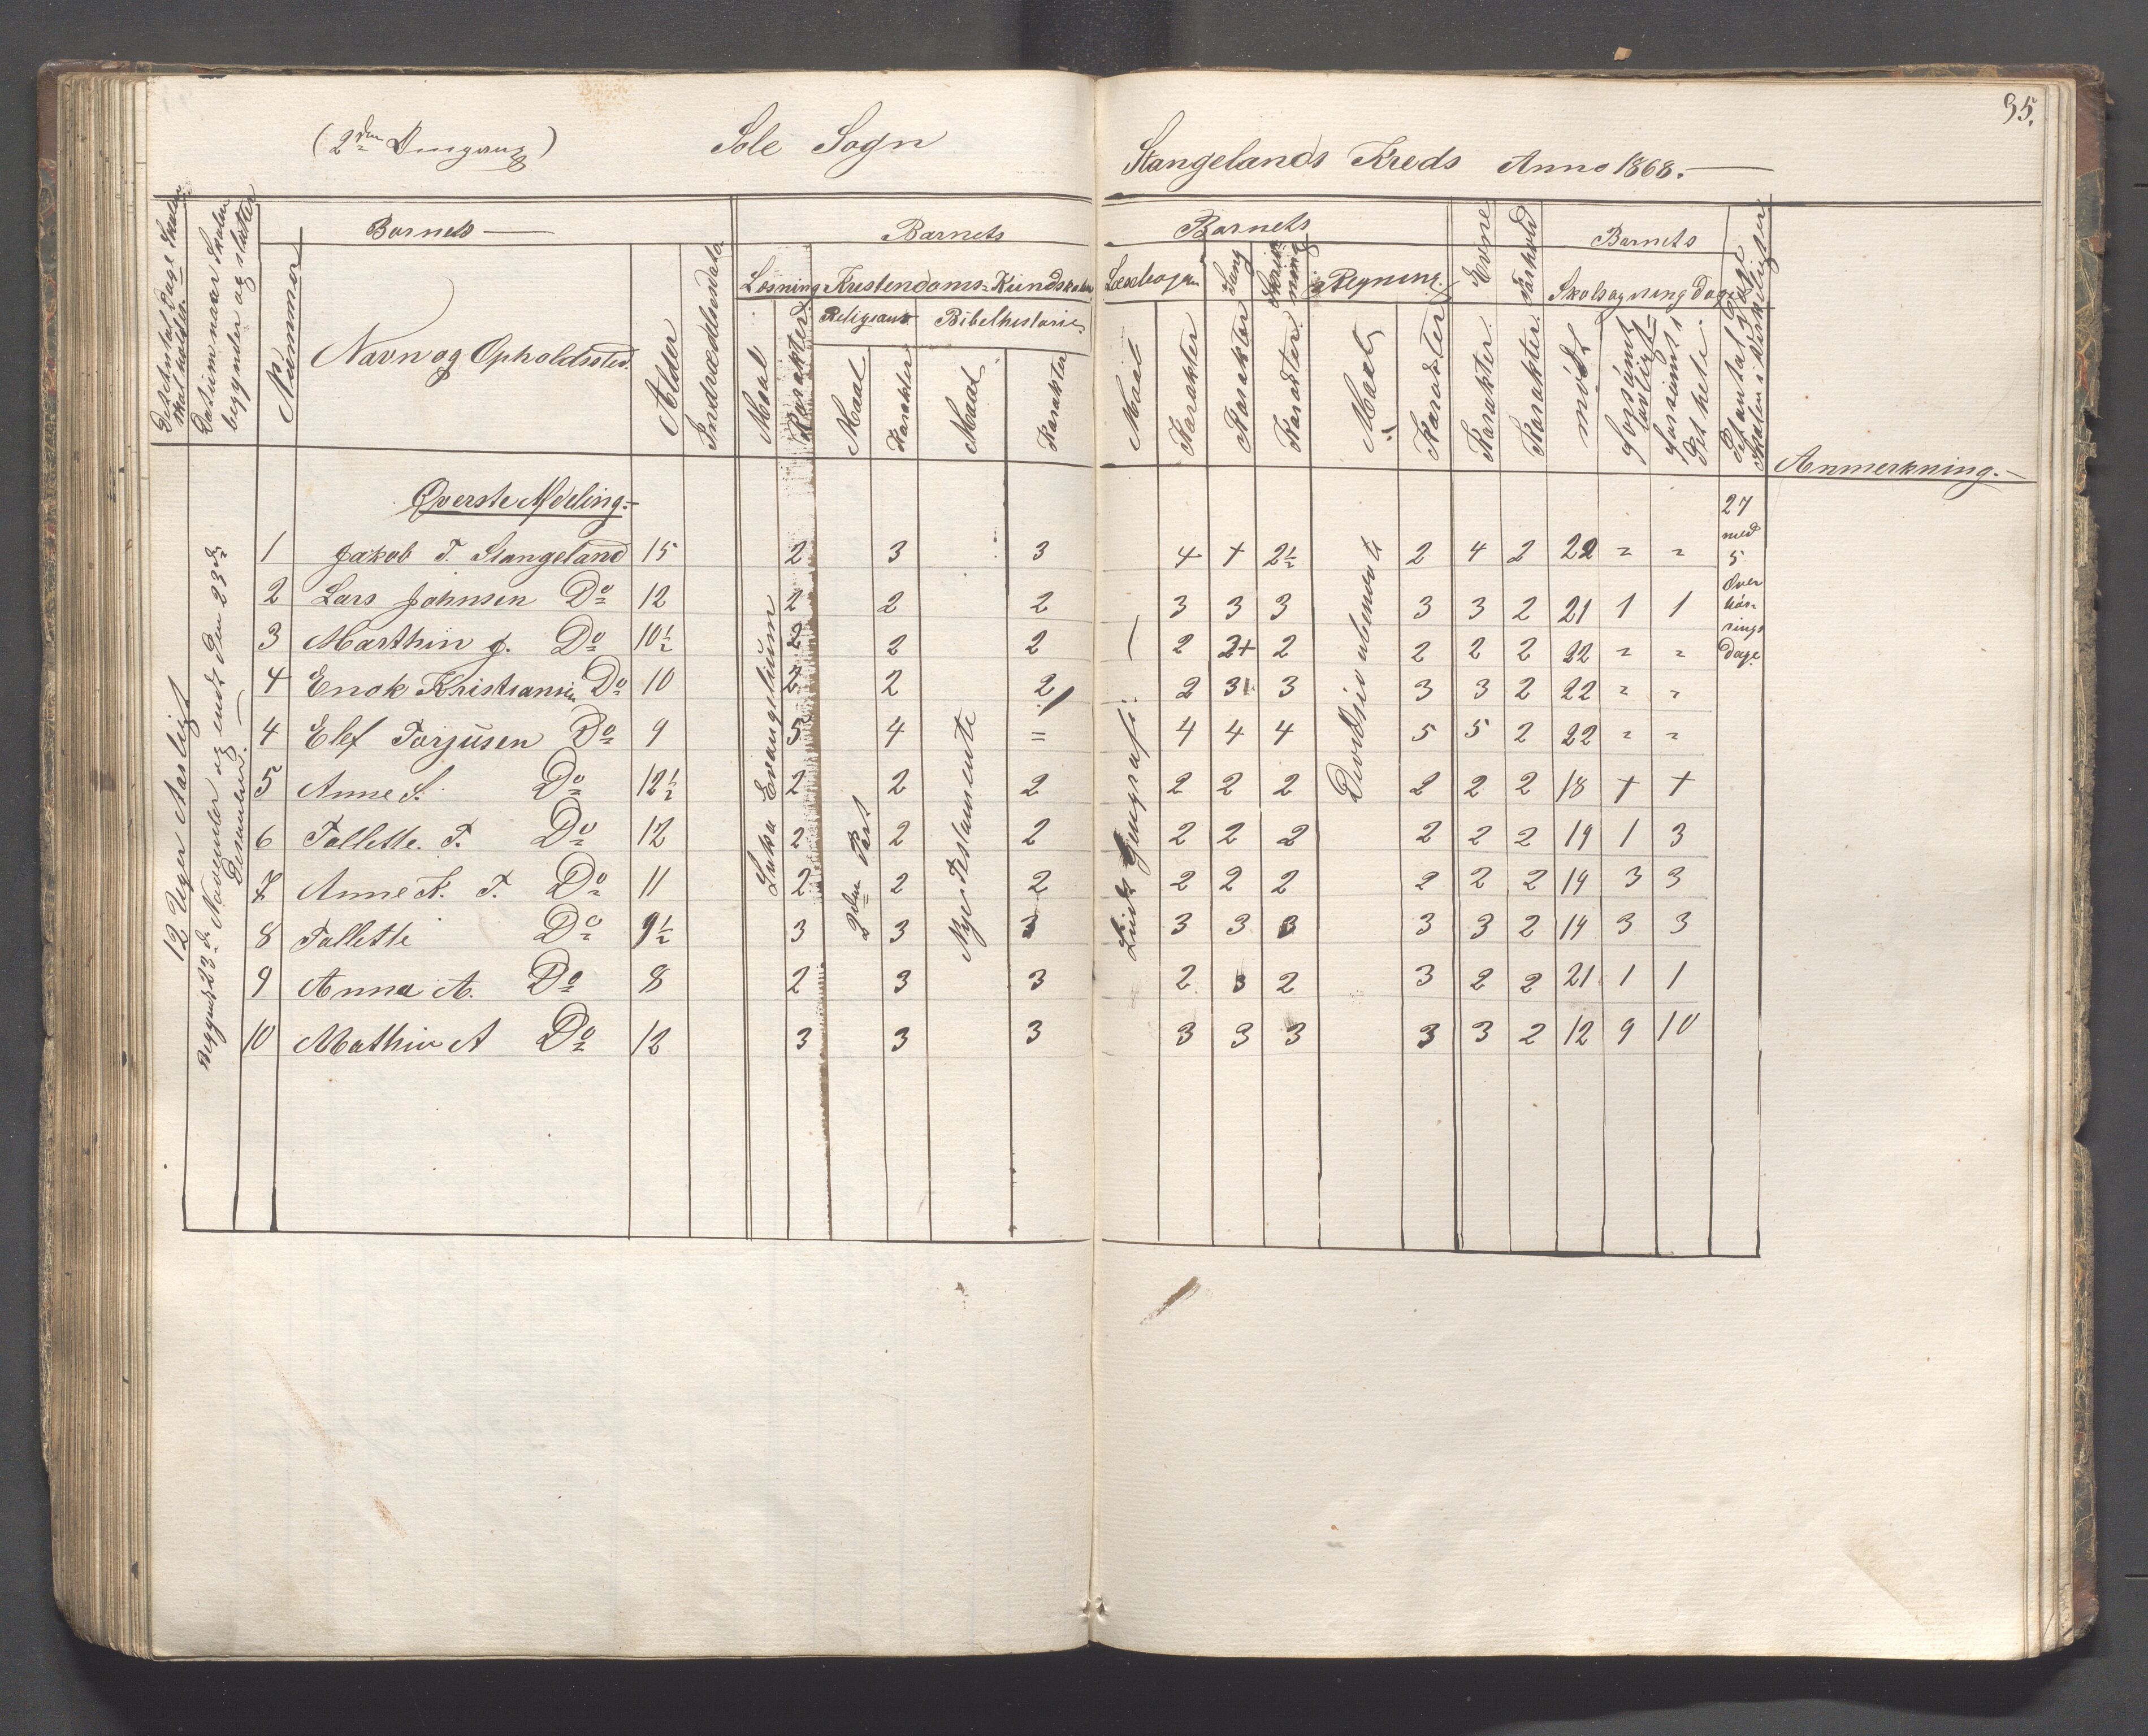 95.
(2den Omgang)
Sole Sogn
Stangelands Kreds Anno 1868.
Barnets
Barnets
Barnets
Barnets
Nummer
Navn og Opholdssted.
Alder
Indtrædelsesdato
Læsning
Kristendoms-Kundskaber
Religionen
Bibelhistorie
Læsebogen
Sang
Skrivning
Regning.
Evne
Forhold
Skolesøgningsdage
Maal Karakter Maal Karakter Maal Karakter Maal Karakter Karakter Karakter Maal Karakter Karakter Karakter mødt forsømt det hele.
Anmerkning.
12 Uger Aarligt
Begyndt 23de November og endt den 23de Desember.
Øverste Afdeling.
Luka Evangelium
2den Part
Nye Testamente
Geografi
27 med 5 Overhørings dage
1 Jakob T. Stangeland 15 2 3 3 4 + 2½ 2 4 2 22 " "
2 Lars Johnsen Do 12 2 2 2 3 3 3 3 3 2 21 1 1
3 Marthin J. Do 10½ 2 2 2 2 2+ 2 2 2 2 22 " "
4 Enok Kristiansen Do 10 2 2 2 2 3 3 3 3 2 22 " "
4 Elef Torjusen Do 9 5 4 = 4 4 4 5 5 2 22 " "
5 Anne S. Do 12½ 2 2 2 2 2 2 2 2 2 18 + +
6 Tollette. T. Do 12 2 2 2 2 2 2 2 2 2 19 1 3
7 Anne K. T. Do 11 2 2 2 2 2 2 2 2 2 19 3 3
8 Tollette Do 9½ 3 3 3 3 3 3 3 3 2 19 3 3
9 Anna A. Do 8 2 3 3 2 3 2 3 2 2 21 1 1
10 Mathin A Do 12 3 3 3 3 3 3 3 3 2 12 9 10